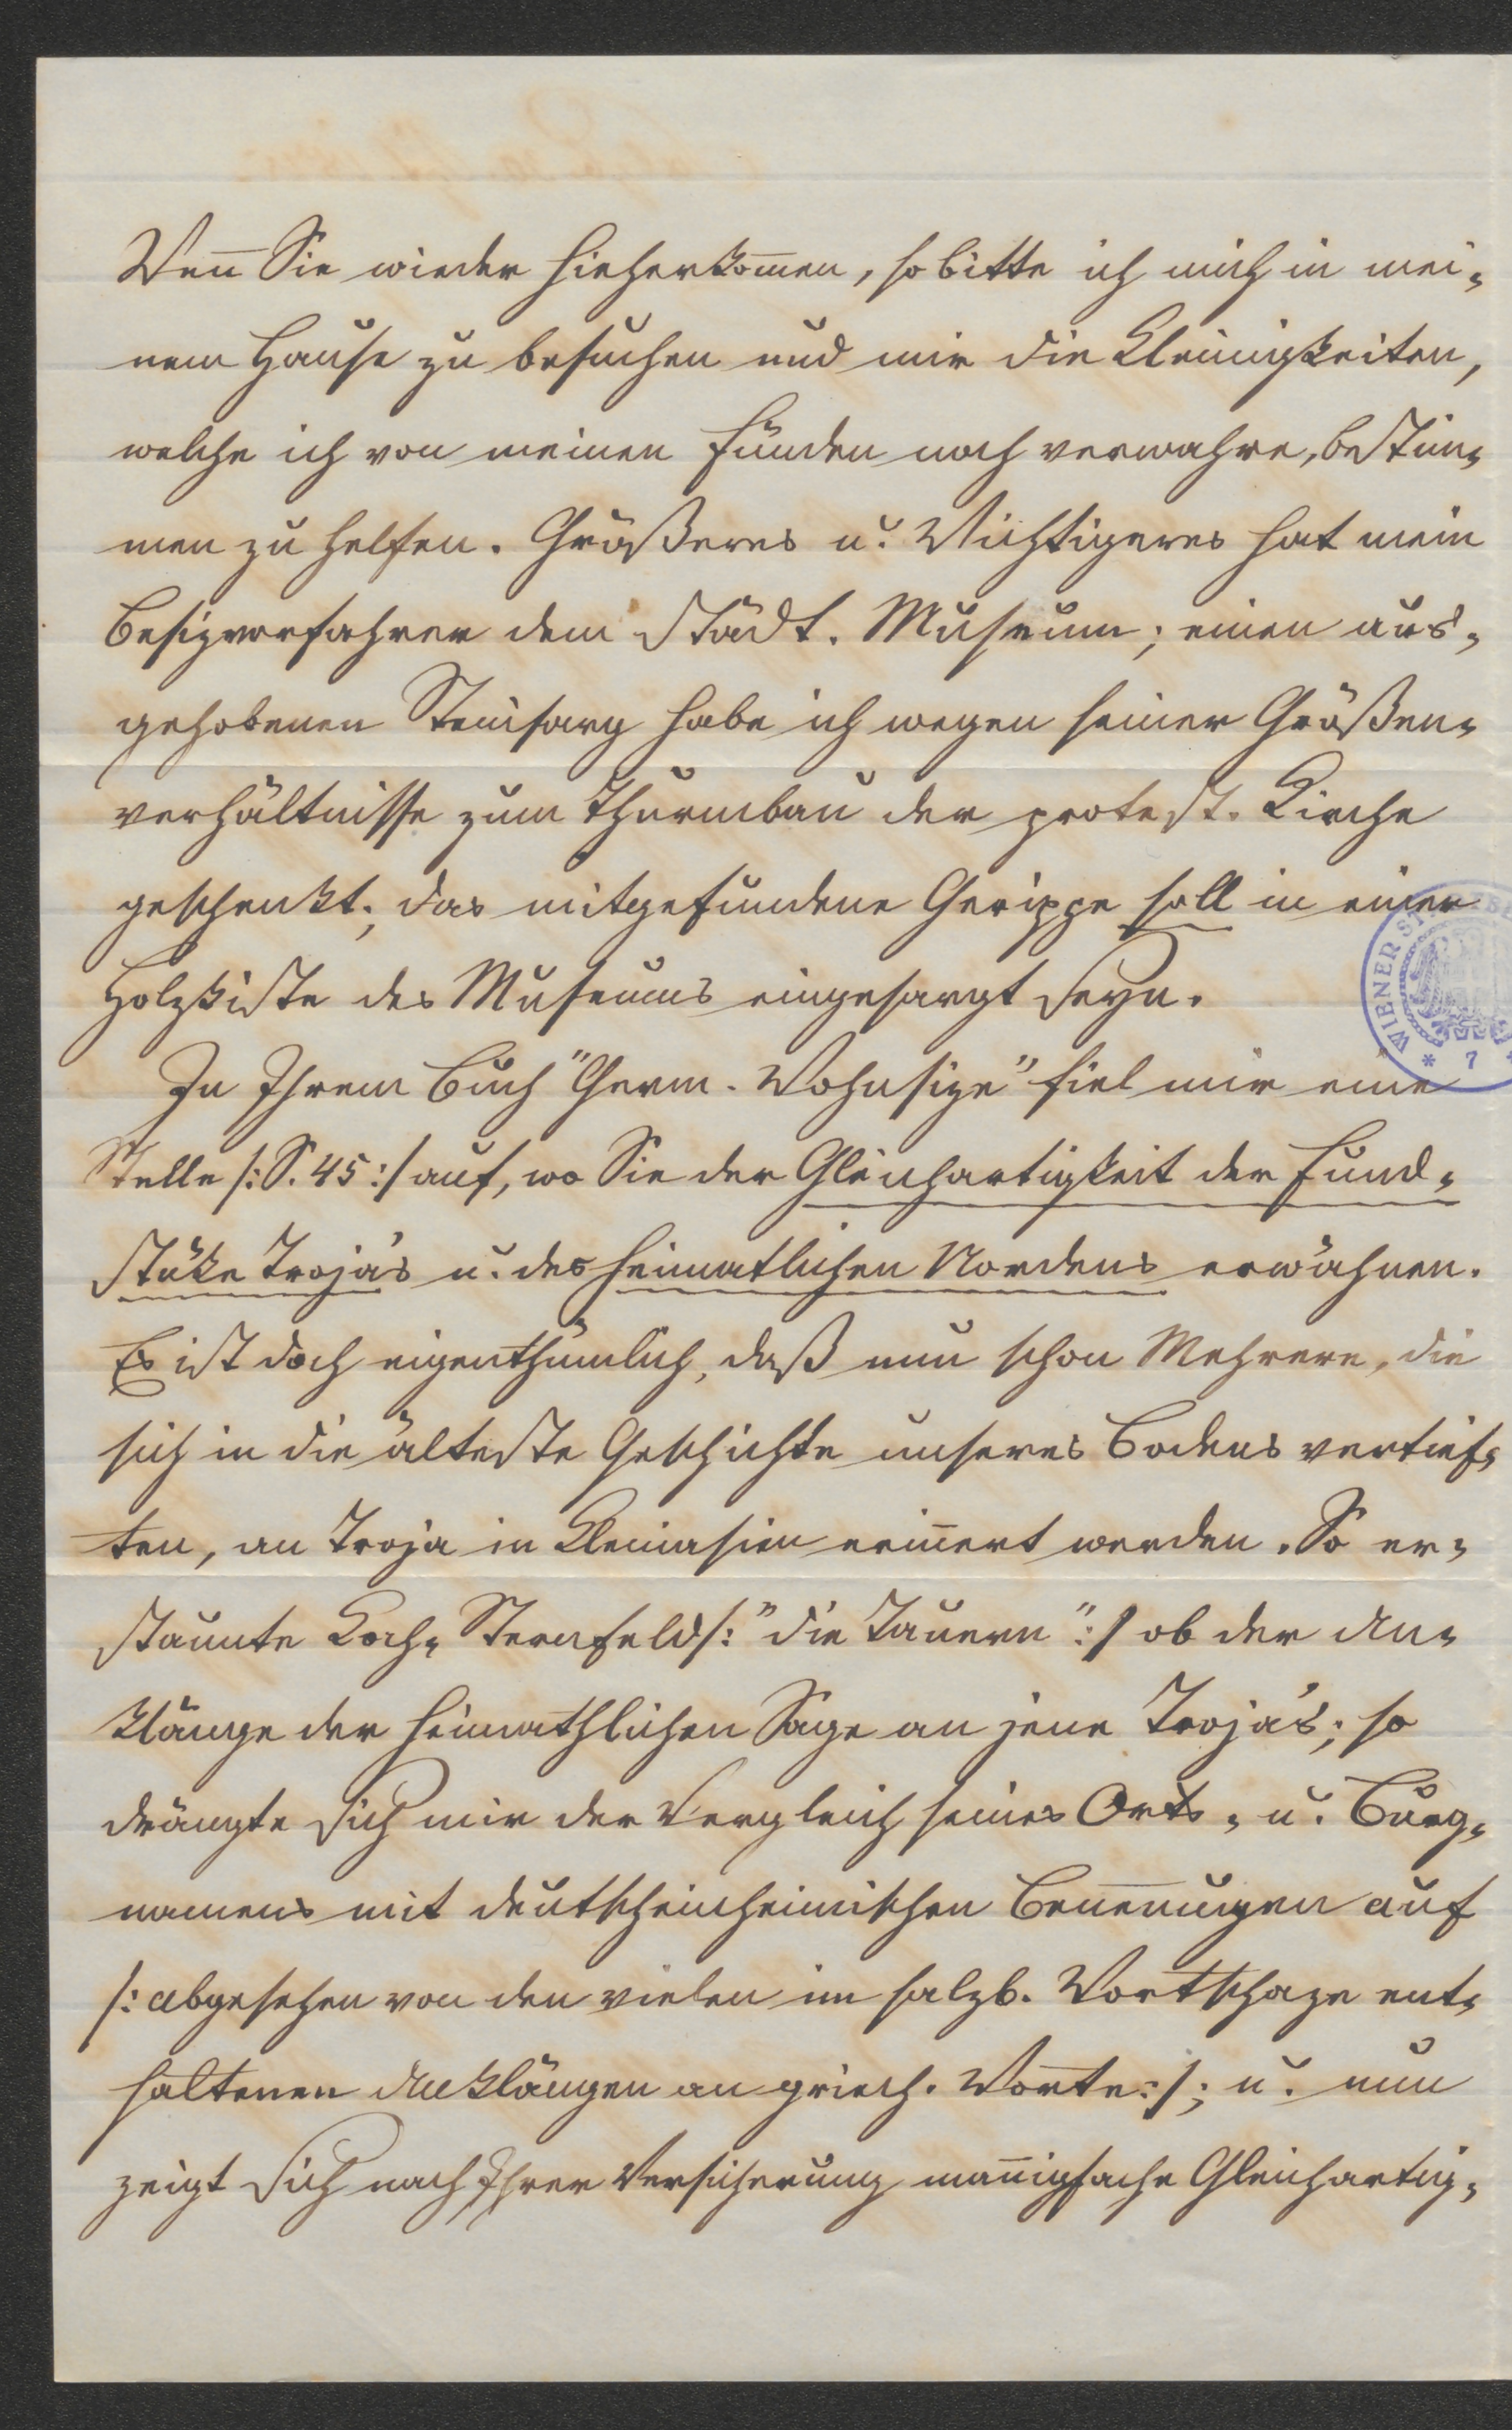 Wen̄ Sie wieder hieherkom̄en, so bitte ich mich in mei-
nem Hause zu besuchen und mir die Kleinigkeiten,
welche ich von meinen Funden noch verwahre, bestim-
men zu helfen. Größeres u. Wichtigeres hat mein
Besizvorfahrer dem städt. Museum; einen aus-
gehobenen Steinsarg habe ich wegen seiner Größen-
verhältnisse zum Thurmbau der protest. Kirche
geschenkt; das mitgefundene Gerippe soll in einer
Holzkiste des Museums eingesargt seyn.
In Ihrem Buch "Germ. Wohnsize" fiel mir eine
Stelle /: S. 45 :/ auf, wo Sie der Gleichartigkeit der Fund-
stüke Troja's u. des heimatlichen Nordens erwähnen.
Es ist doch eigenthümlich, daß nun schon Mehrere, die
sich in die älteste Geschichte unseres Bodens vertief-
ten, an Troja in Kleinasien erin̄ert werden. So er-
staunte Koch-Sternfeld /: "die Tauern" :/ ob der An-
klänge der heimathlichen Sage an jene Troja's; so
drängte sich mir der Vergleich seines Orts- u. Burg-
namens mit deutscheinheimischen Benen̄ungen auf
/: abgesehen von den vielen im salzb. Wortschaze ent-
haltenen Anklängen an griech. Worte :/; u. nun
zeigt sich nach Ihrer Versicherung man̄igfache Gleichartig-
WIENER ST
* 7 *